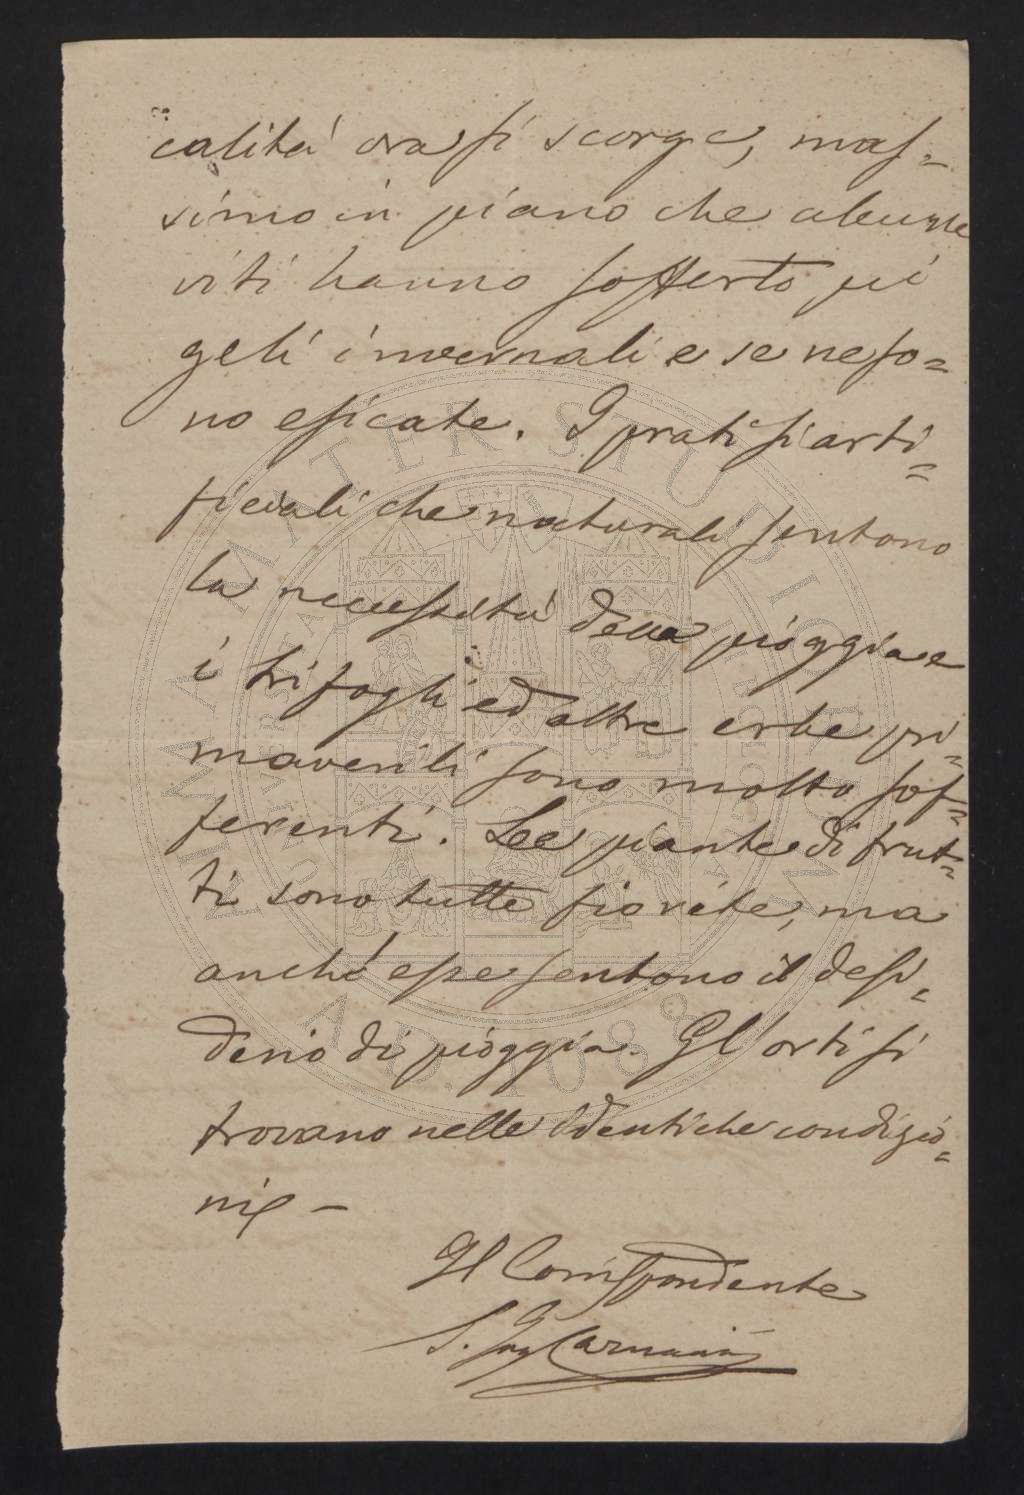 calitá ora si scorge, mas=
simo in piano che alcune
viti hanno sofferto pei
geli invernali e se ne so=
no esicate. I prati si arti=
ficiali che naturali sentono
la necessitá della pioggia e
i trifogli ed altre erbe pri=
maverili sono molto sof=
ferenti. Lee piante di frut=
ti sono tutte fiorite, ma
anché esse sentono il desi=
derio di pioggia. Gl'orti si
trovano nelle identiche condizio=
ni –
Il Corrispondente
S. Ing
ALMA MATER STUDIORUM
A.D. 1088